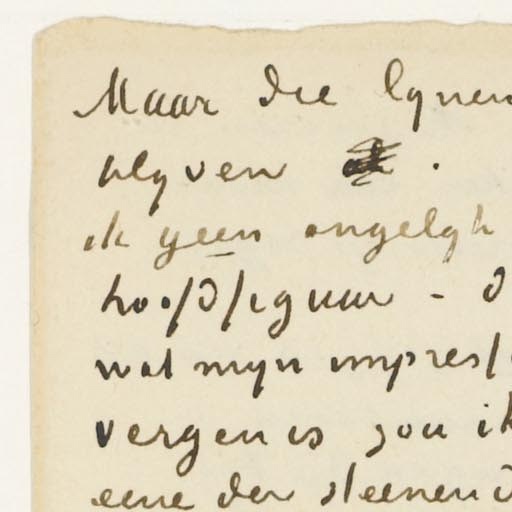 Maar die lynen
blyven .
ik geen ongelyk
hoofdfiguur - d
wat myn impress
vergen is zou ik
eene der steenen d